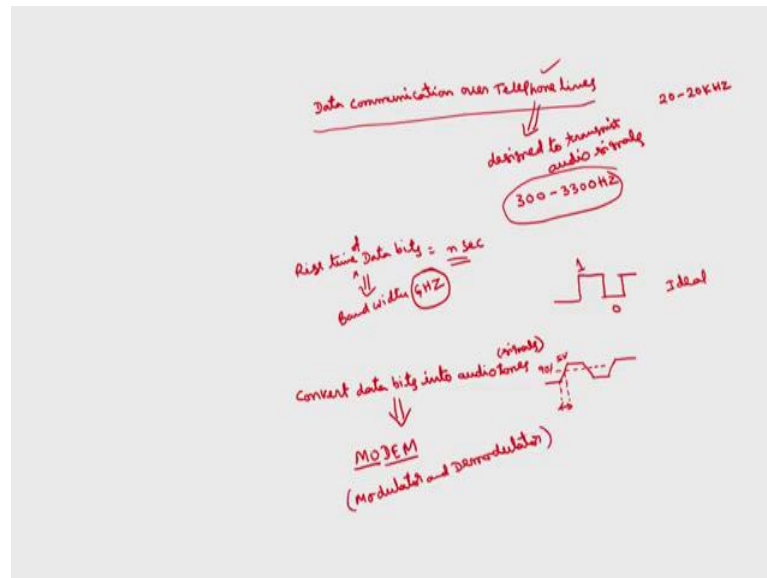 Data communication over Telephone lines
20-20KHZ
designed to transmit
audio signals
300-3300HZ
Rise time of Data bits = n sec
Bandwidth GHZ
1
0
Ideal
Convert data bits into audio tones (signals)
90%
5V
MODEM
(Modulator and Demodulator)